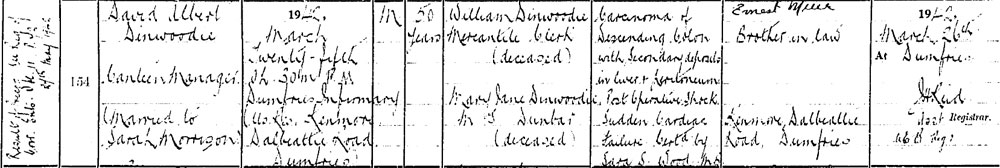 154
David Albert
Dinwoodie
Canteen Manager
Married to
Sarah Morrison
1942.
March
Twenty-fifth
5h. 50m. P.M.
Dumfries Infirmary
Kenmore
Dalbeattie Road
Dumfries
M
50
years
William Dinwoodie
Mercantile Clerk
(deceased)
Mary Jane Dinwoodie
M.S. Dunbar
(deceased)
Carcinoma of
Descending Colon
with Secondary deposits
in liver & peritoneum
Post Operative Shock
Sudden Cardiac
Failure Certd by
Sara S. Wood
Ernest
Brother in law
Kenmore, Dalbeattie
Road, Dumfries
1942.
March 26th
At Dumfries
Registrar.